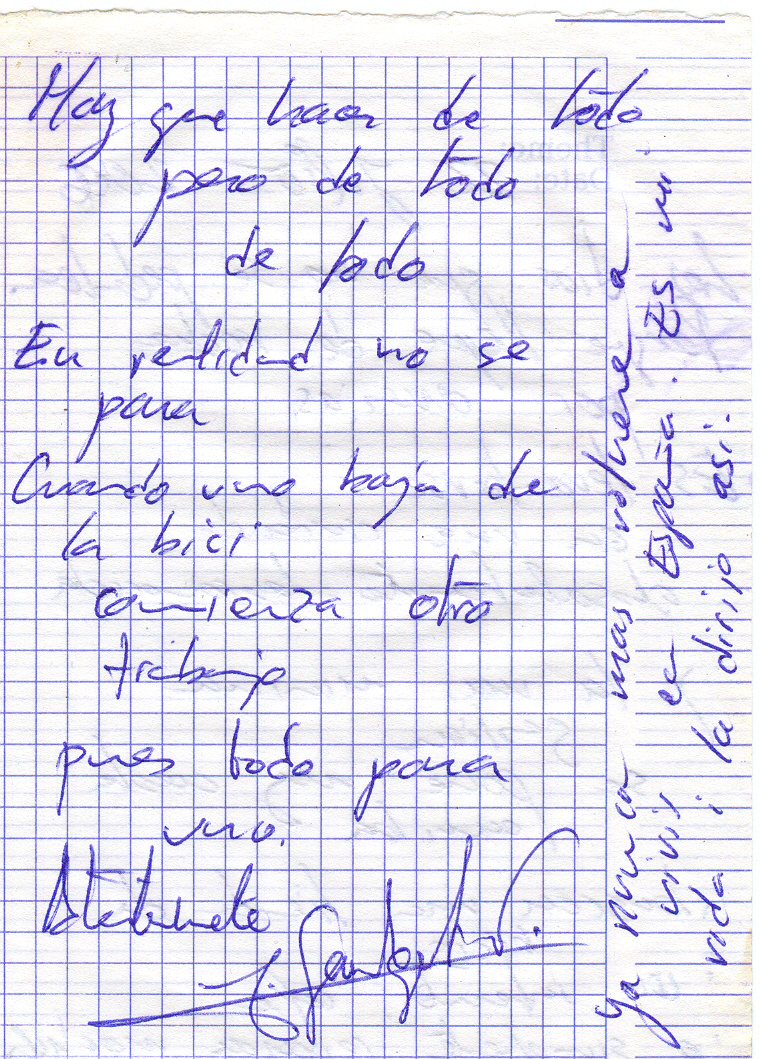 Hay que hacer de todo
pero de todo
de todo
En realidad no se
para
Cuando uno baja de
la bici
comienza otro
trabajo
pues todo para
uno.
Ya nunca mas volvere a
vivir en España. Es mi
vida i la dirijo asi.